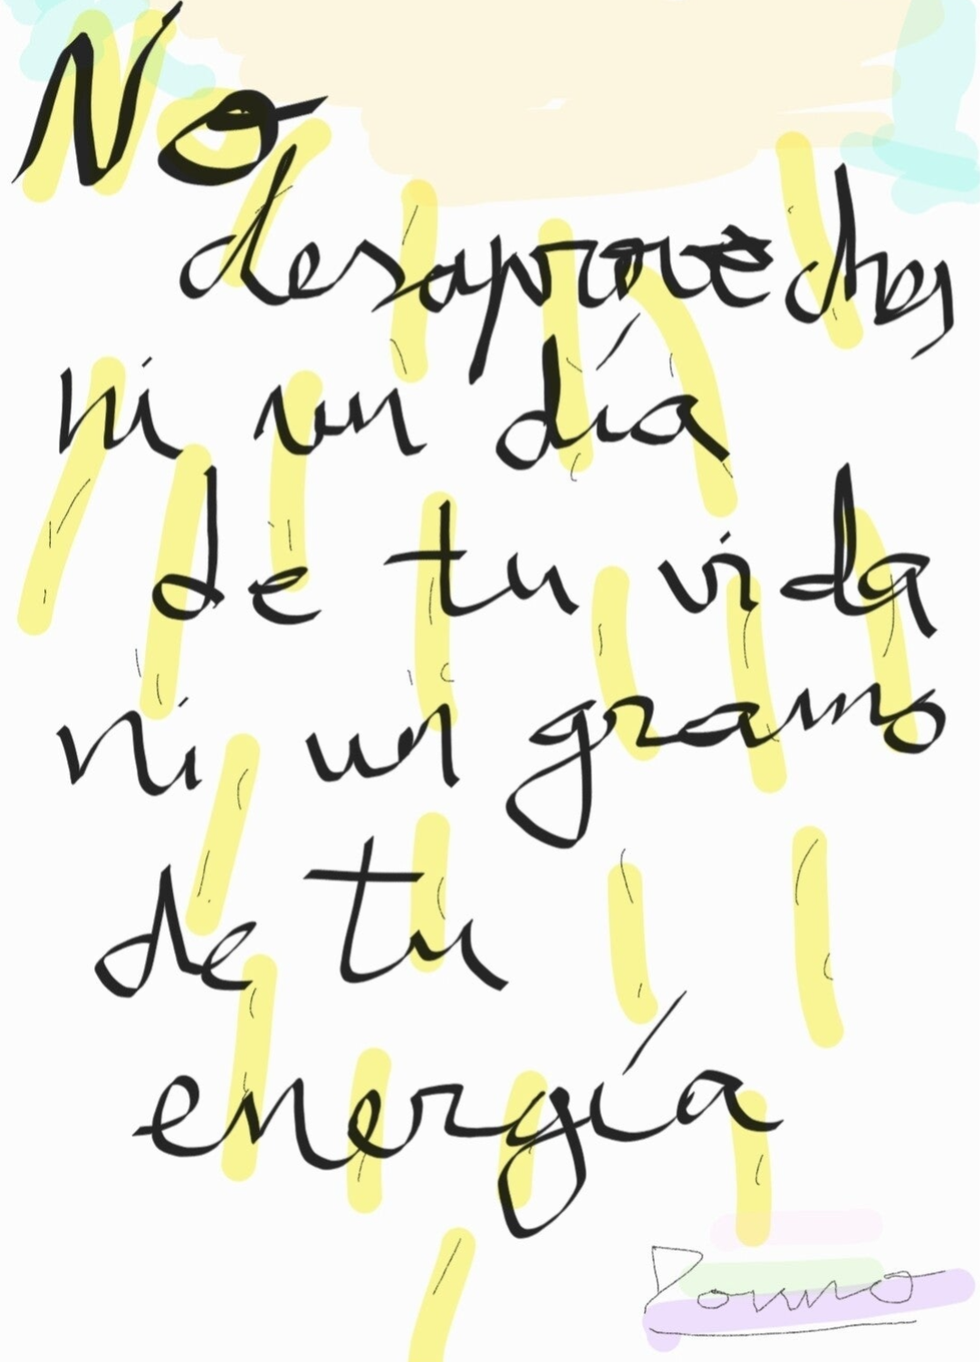 No
desaproveches
ni un día
de tu vida
ni un gramo
de tu
energía